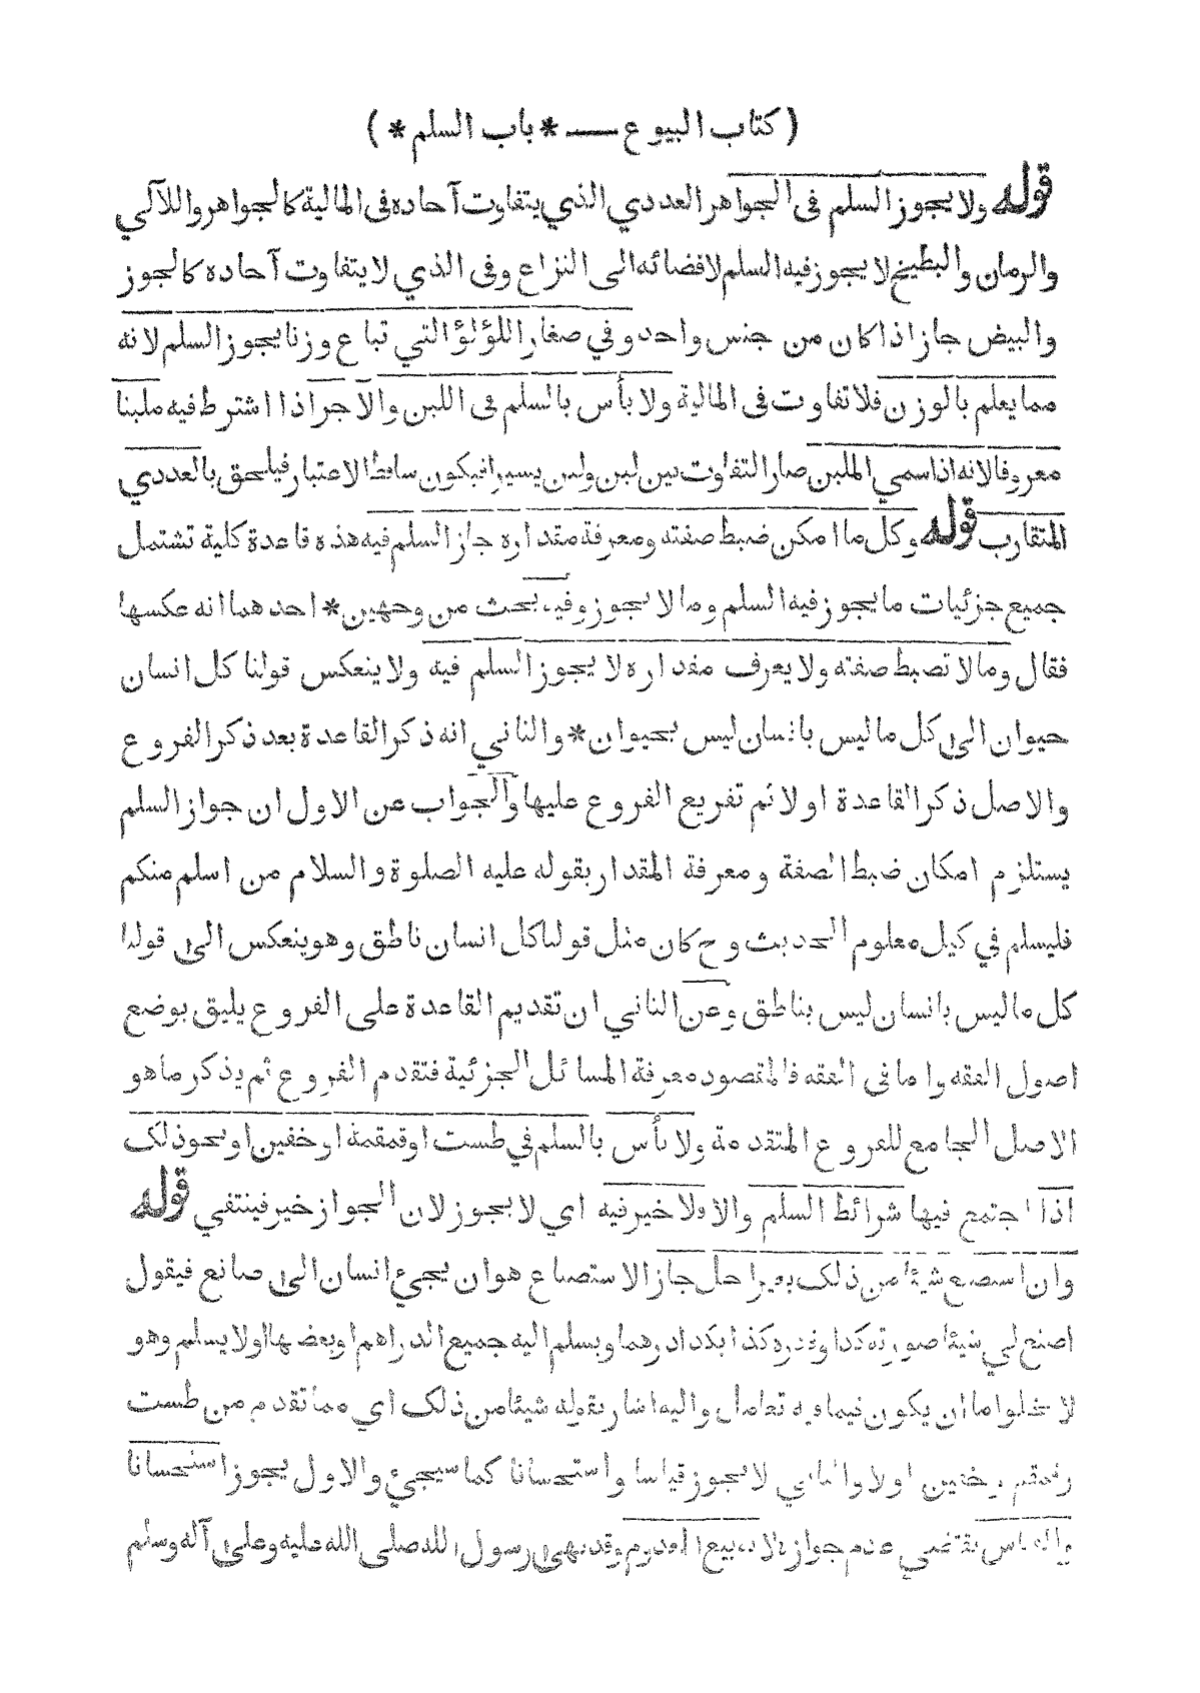 ( كتاب البيوع — * باب السلم * )
قوله ولا يجوز السلم فى الجواهر العددي الذي يتفاوت آحاده فى المالية كالجواهر واللآلي
والرمان والبطيخ لا يجوز فيه السلم لافضائه الى النزاع وفى الذي لا يتفاوت آحاده كالجوز
والبيض جاز اذا كان من جنس واحد وفي صغار اللؤلؤ التي تباع وزنا يجوز السلم لانه
مما يعلم بالوزن فلا تفاوت فى المالية ولا بأس بالسلم فى اللبن والآجر اذا اشترط فيه ملبنا
معروفا لانه اذا سمي الملبن صار التفاوت بين لبن ولبن يسيرا فيكون ساقط الاعتبار فيلحق بالعددي
المتقارب قوله وكل ما امكن ضبط صفته ومعرفة مقداره جاز السلم فيه هذه قاعدة كلية تشتمل
جميع جزئيات ما يجوز فيه السلم وما لا يجوز وفيه بحث من وجهين * احدهما انه عكسها
فقال وما لا تضبط صفته ولا يعرف مقداره لا يجوز السلم فيه ولا ينعكس قولنا كل انسان
حيوان الى كل ما ليس بانسان ليس بحيوان * والثاني انه ذكر القاعدة بعد ذكر الفروع
والاصل ذكر القاعدة اولا ثم تفريع الفروع عليها والجواب عن الاول ان جواز السلم
يستلزم امكان ضبط الصفة ومعرفة المقدار بقوله عليه الصلوة والسلام من اسلم منكم
فليسلم في كيل معلوم الحديث وح كان مثل قولنا كل انسان ناطق وهو ينعكس الى قولنا
كل ما ليس بانسان ليس بناطق وعن الثاني ان تقديم القاعدة على الفروع يليق بوضع
اصول الفقه واما فى الفقه فالمقصود معرفة المسائل الجزئية فتقدم الفروع ثم يذكر ما هو
الاصل الجامع للفروع المتقدمة ولا بأس بالسلم في طست او قمقمة او خفين او نحو ذلك
اذا اجتمع فيها شرائط السلم والا فلا خير فيه اي لا يجوز لان الجواز خير فينتفي قوله
وان استصنع شيئا من ذلك بغير اجل جاز الاستصناع هو ان يجيئ انسان الى صانع فيقول
اصنع لي شيئا صورته كذا وقدره كذا بكذا درهما ويسلم اليه جميع الدراهم او بعضها او لا يسلم وهو
لا يخلوا ما ان يكون فيما فيه تعامل واليه اشار بقوله شيئا من ذلك اي مما تقدم من طست
وقمقم وخفين اولا والثاني لا يجوز قياسا واستحسانا كما سيجيئ والاول يجوز استحسانا
والقياس يقتضي عدم جوازه لانه بيع المعدوم وقد نهى رسول الله صلى الله عليه وعلى آله وسلم